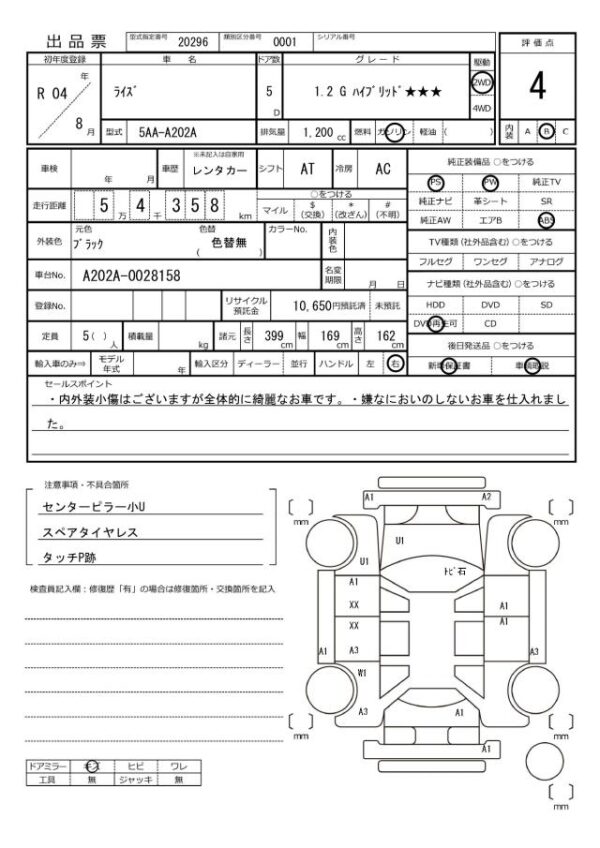 出品票 型式指定番号 20296 類別区分番号 0001 シリアル番号
評価点
4
内装 A B C
初年度登録 車名 ドア数 グレード 駆動
R 04 年 8 月 ﾗｲｽﾞ 5 D 1.2 G ﾊｲﾌﾞﾘｯﾄﾞ★★★ 2WD 4WD
型式 5AA-A202A 排気量 1,200 cc 燃料 ガソリン 軽油 ( )
車検 年 月 車歴 ※未記入は自家用 レンタカー シフト AT 冷房 AC
走行距離 5万4千358 km ○をつける マイル $(交換) *(改ざん) #(不明)
外装色 元色 ﾌﾞﾗｯｸ 色替 ( 色替無 ) カラーNo. 内装色
車台No. A202A-0028158 名変期限 月 日
登録No. リサイクル預託金 10,650円預託済 未預託
定員 5 ( ) 人 積載量 kg 諸元 長さ 399 cm 幅 169 cm 高さ 162 cm
輸入車のみ⇒ モデル年式 年 輸入区分 ディーラー 並行 ハンドル 左 右
純正装備品 ○をつける
PS PW 純正TV
純正ナビ 革シート SR
純正AW エアB ABS
TV種類 (社外品含む) ○をつける
フルセグ ワンセグ アナログ
ナビ種類 (社外品含む) ○をつける
HDD DVD SD
DVD再生可 CD
後日発送品 ○をつける
新車保証書 車輌取説
セールスポイント
・内外装小傷はございますが全体的に綺麗なお車です。・嫌なにおいのしないお車を仕入れまし
た。
注意事項・不具合箇所
センターピラー小U
スペアタイヤレス
タッチP跡
検査員記入欄：修復歴「有」の場合は修復箇所・交換箇所を記入
ドアミラー キズ ヒビ ワレ
工具 無 ジャッキ 無
A1 A2
[ ] mm [ ] mm
U1
U1 ﾄﾋﾞ石
A1
XX A1
XX A1
A1 A3 A3
W1
A3 A1
[ ] mm [ ] mm
A1
[ ] mm